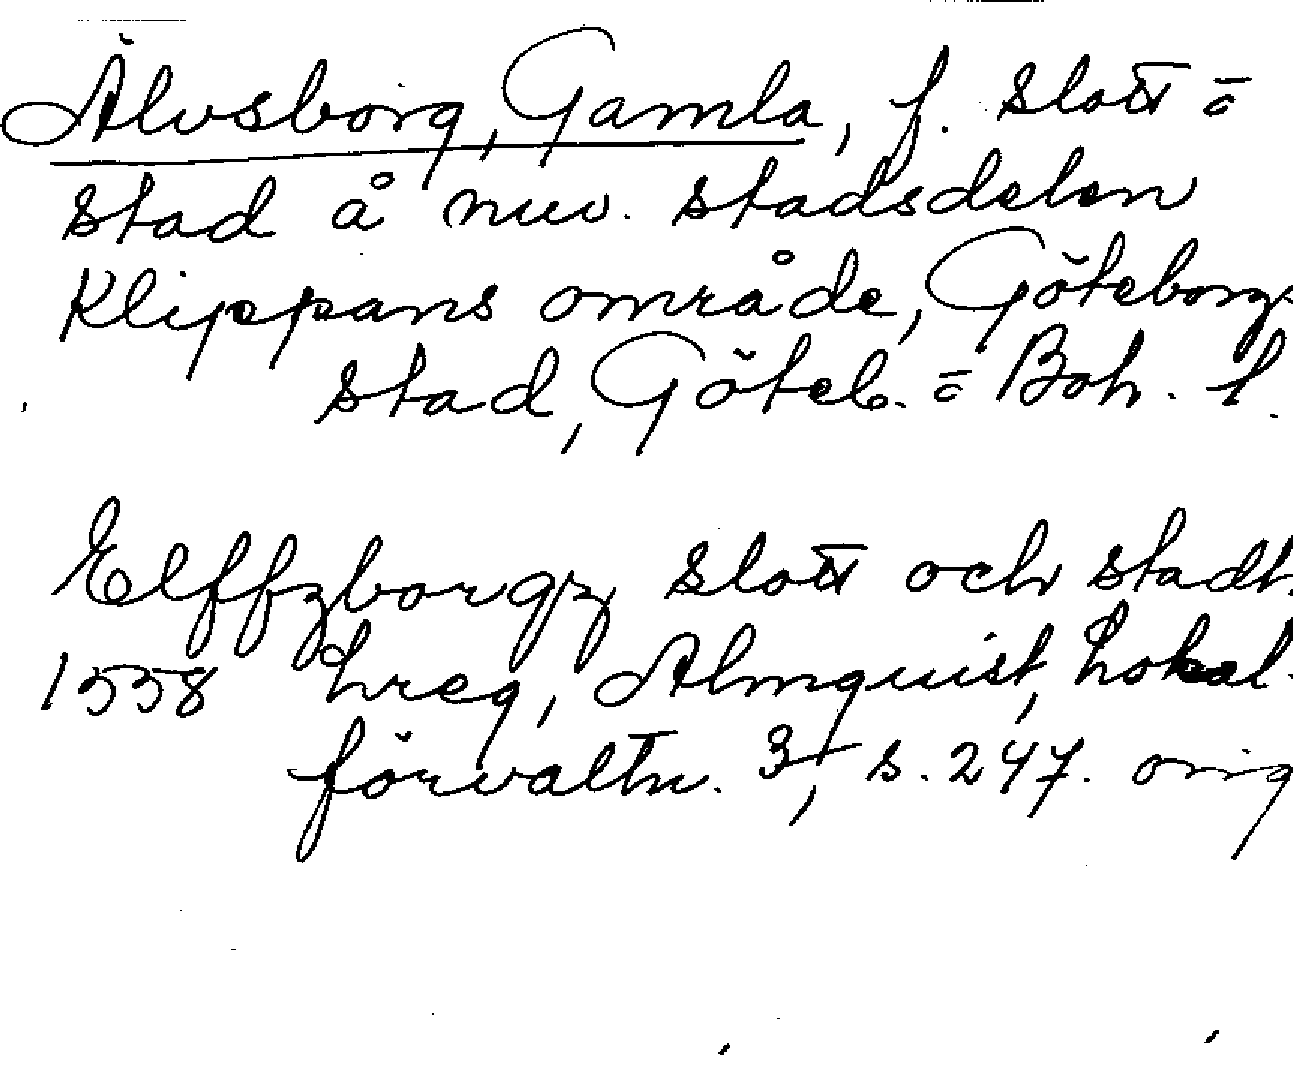 Älvsborg, Gamla, f. slott o
stad å nuv. stadsdelen
Klippans område, Göteborgs
stad, Göteb. o Boh. l.
Elffzborgz slott och stadh
1558 hreg, Almquist, Lokal-
förvaltn. 3, s. 247. orig